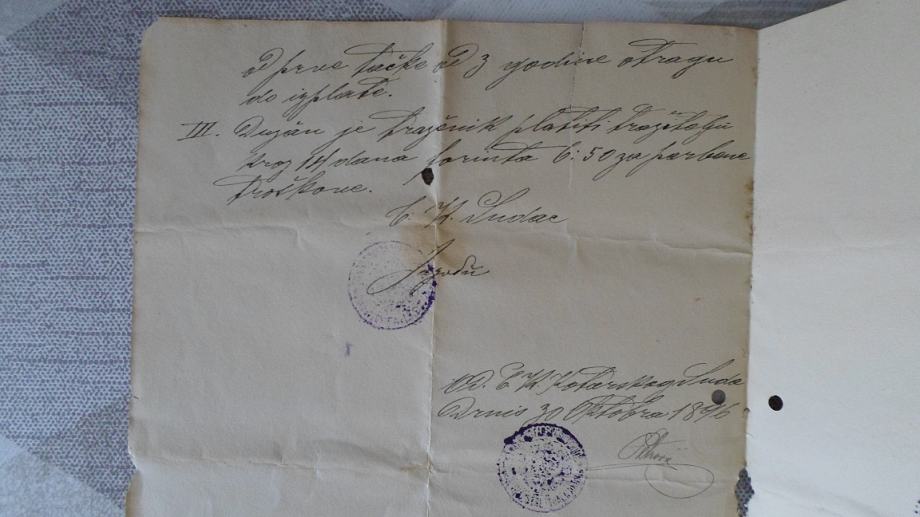 od prve tačke od 3 godine otragu
do izplate.
III. Dužan je traženik platiti tražitelju
kroz 14 dana forinta 6:50 za parbene
troškove.
C. K. Sudac
Od C. K. Kotarskog Suda
Drniš 30 Oktobra 1896